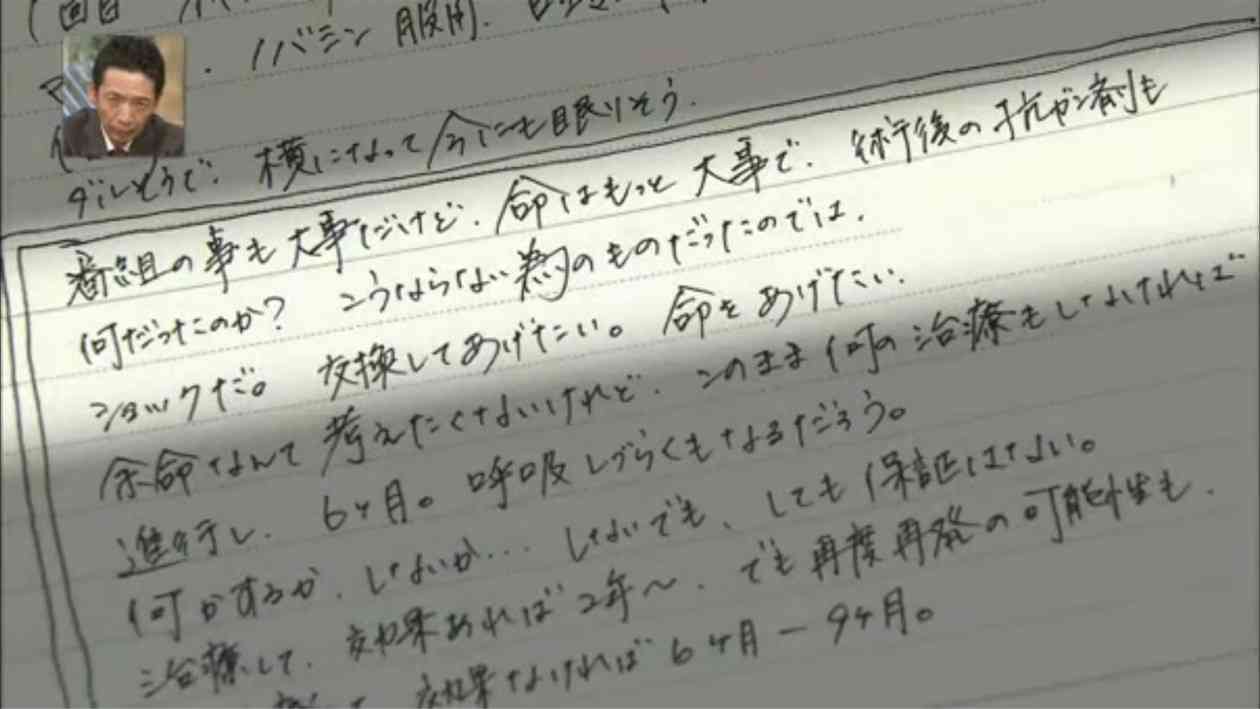 1回目
ノバミン 服用.
ダルそうで、横になって今にも眠りそう.
番組の事も大事だけど、命はもっと大事で、術後の抗ガン剤も
何だったのか? こうならない為のものだったのでは.
ショックだ。 交換してあげたい。 命をあげたい.
余命なんて考えたくないけれど、このまま何の治療もしなければ
進行し、6ヶ月。呼吸しづらくもなるだろう。
何かするか、しないか… しないでも、しても保証はない。
治療して、効果あれば2年〜、でも再度再発の可能性も.
効果なければ6ヶ月ー9ヶ月。